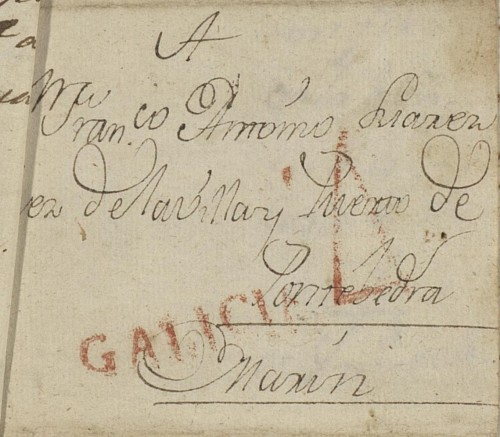 A
Fran.co Antonio Suarez
de la villa y Puerto de
Pontevedra
GALICIA
Marin